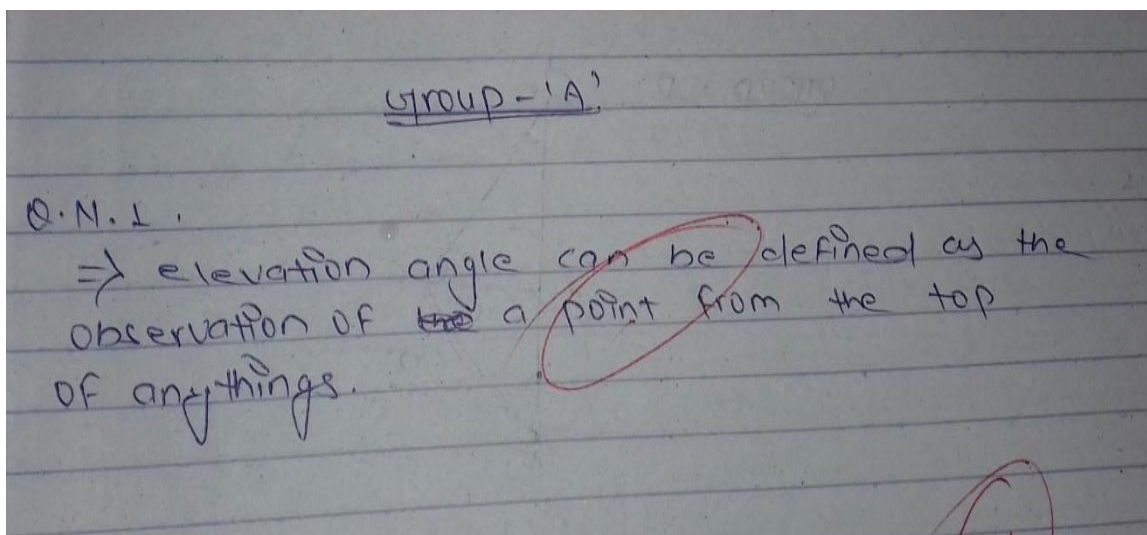 Group-'A'
Q.N.1.
=> elevation angle can be defined as the
observation of a point from the top
of anythings.